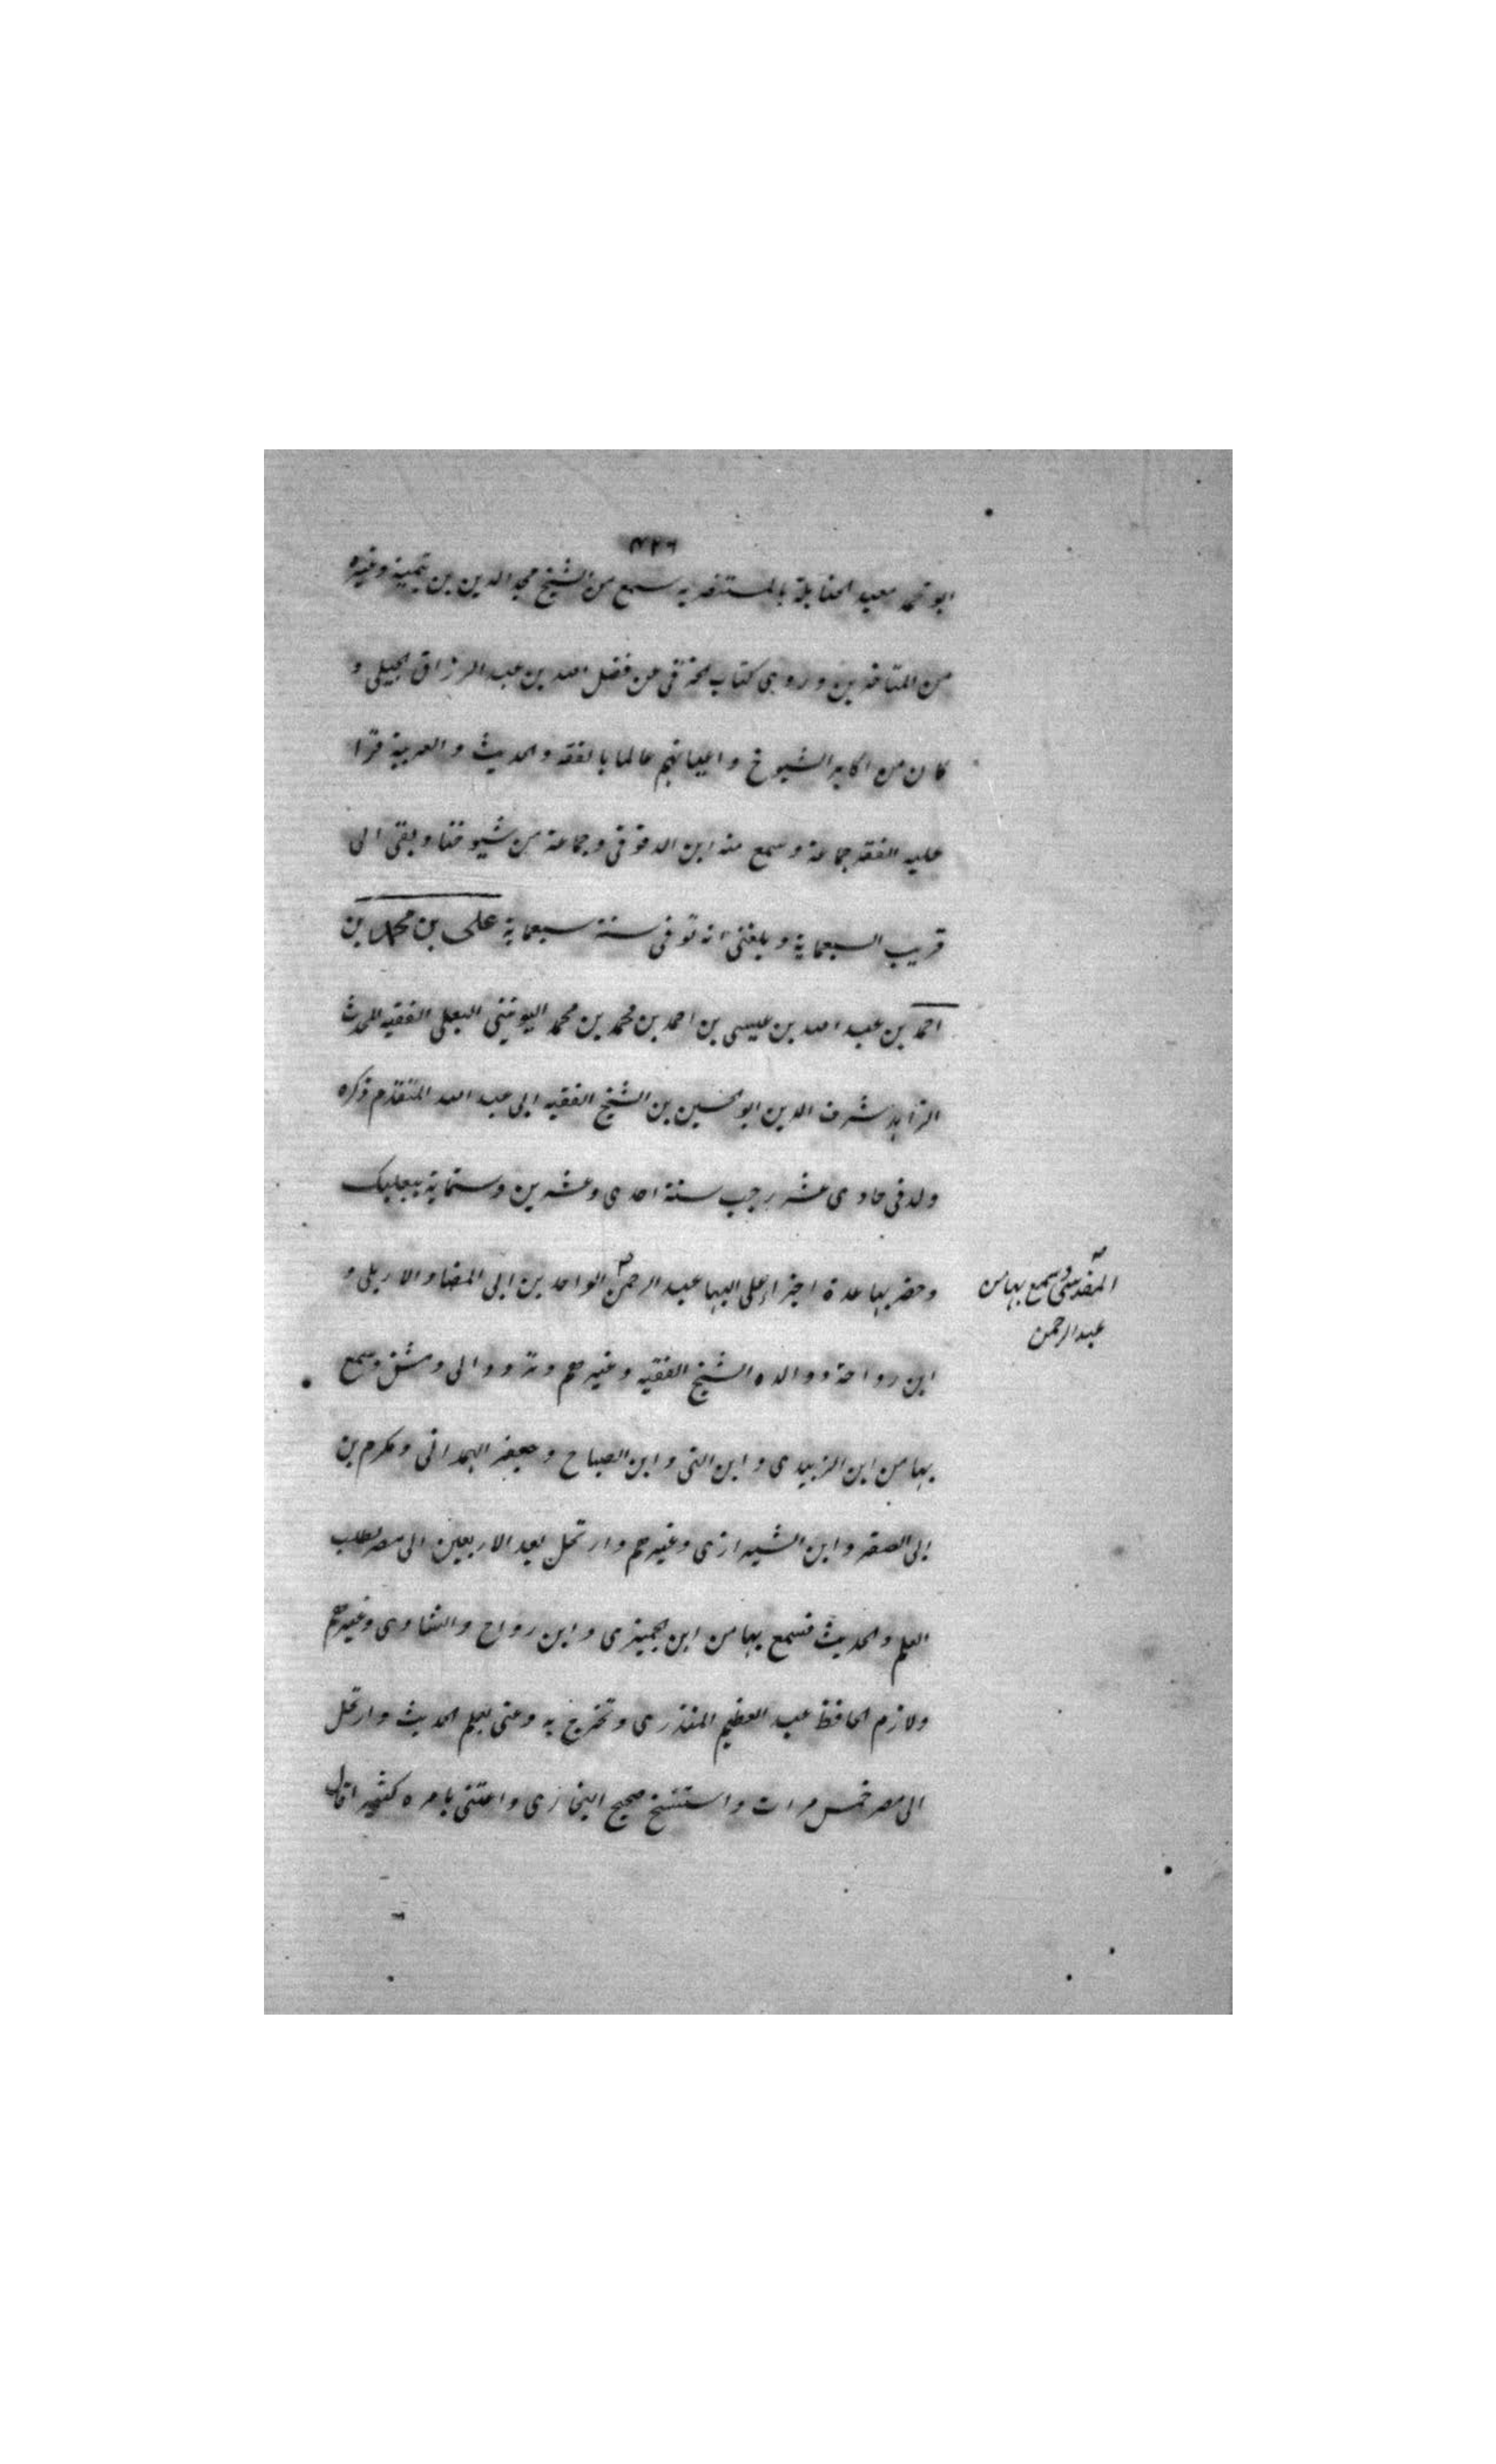 ٤٢٦
ابو محمد معيد الحنابلة بالمستنصرية سمع من الشيخ مجد الدين بن تيمية وغيره
من المتاخرين وروى كتاب الخرقى عن فضل الله بن عبد الرزاق الجيلى و
كان من اكابر الشيوخ واعيانهم عالما بالفقه والحديث والعربية قرا
عليه الفقه جماعة وسمع منه ابن الدقوقى وجماعة من شيوخنا وبقى الى
قريب السبعماية وبلغنى انه توفى سنة سبعماية على بن محمد بن
احمد بن عبد الله بن عيسى بن احمد بن محمد بن محمد اليونينى البعلى الفقيه المحدث
الزاهد شرف الدين ابو الحسين بن الشيخ الفقيه ابى عبد الله المتقدم ذكره
ولد فى حادى عشر رجب سنة احدى وعشرين وستماية ببعلبك
وحضر بها عدة اجزاء على البها عبد الرحمن الواحد بن ابى المضا والاربلى و
المقدسى وسمع بها من
عبد الرحمن
ابن رواحة ووالده الشيخ الفقيه وغيرهم وتردد الى دمشق وسمع
بها من ابن الزبيدى وابن التى وابن الصباح وجعفر الهمدانى ومكرم بن
ابى الصقر وابن الشيرازى وغيرهم وارتحل بعد الاربعين الى مصر لطلب
العلم والحديث فسمع بها من ابن الجميزى وابن رواج والشاوى وغيرهم
ولازم الحافظ عبد العظيم المنذرى وتخرج به وعنى بعلم الحديث وارتحل
الى مصر خمس مرات واستنسخ صحيح البخارى واعتنى بامره كثيرا قال